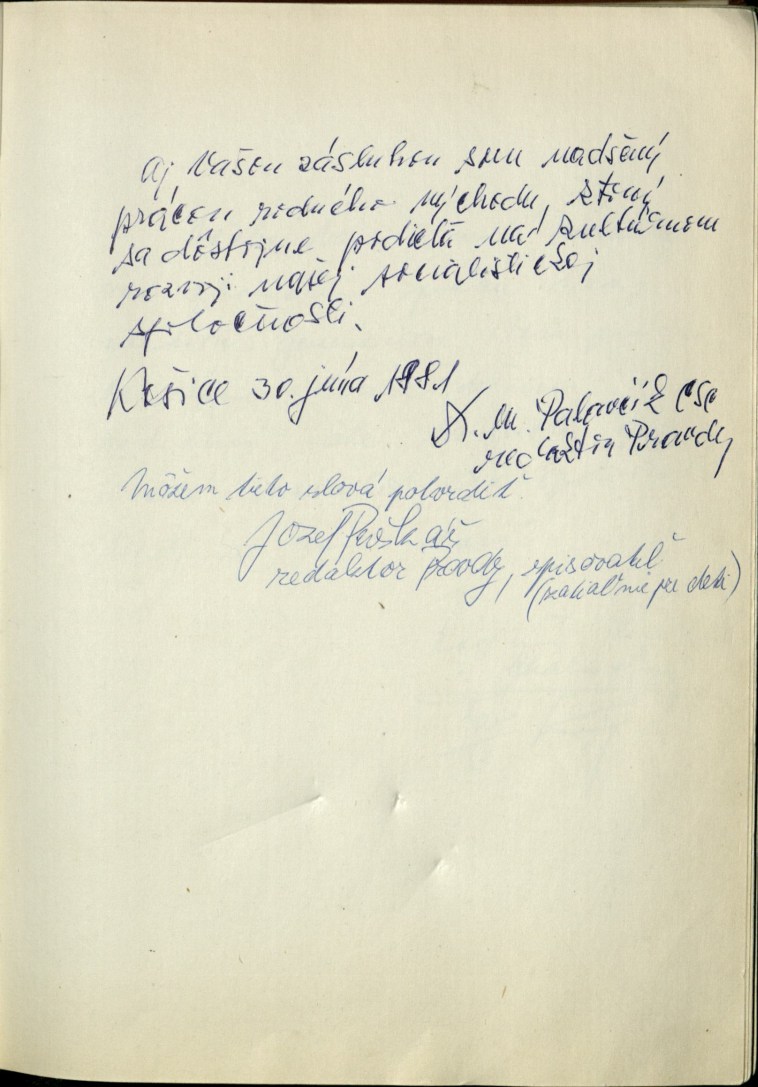 Aj Vašou zásluhou som nadšený
prácou rodného východu, ktorý
sa dôstojne podieľa na kultúrnom
rozvoji našej socialistickej
spoločnosti.
Košice 30. júna 1981
M. Palovčík CSc
Pravdy
Môžem tieto slová potvrdiť.
Jozef
redaktor Pravdy, spisovateľ
(zatiaľ nie pre deti)